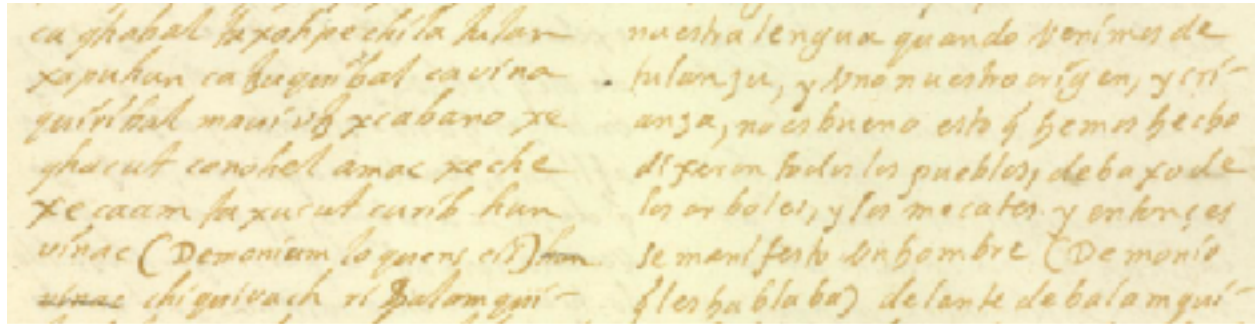 ca ghabal ta xohpe chila tulan
xapu han ca tuquibal ca vina
quiribal maui utz xcabano xe
ghacut conohel amac xe che
xe caam ta xucut curib hun
vinac (Demonium loquens eis) hun
vinac chiquivach ri balamqui-
nuestra lengua quando venimos de
tulansu, y vno nuestro origen, y cri-
ansa, no es bueno esto q̃ hemos hecho
dixeron todos los pueblos, debaxo de
los arboles, y los mecates. y entonçes
se manifesto vn hombre (Demonio
q̃ les hablaba) delante de balamqui-